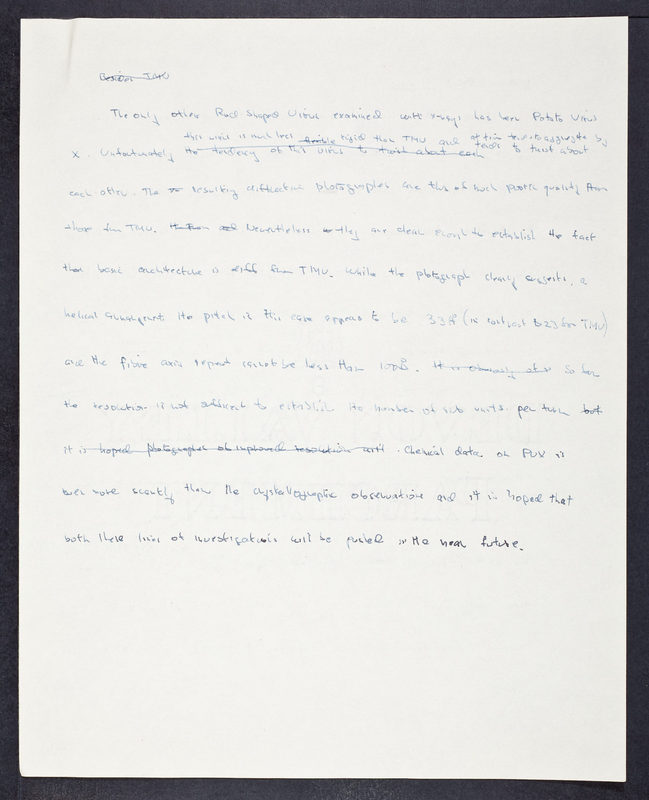 Besides TMV
The only other Rod Shaped Virus examined with x-rays has been Potato Virus
this virus is much less flexible rigid than TMV and often tries to aggregate by
X. Unfortunately the tendency of this virus to twist about each tends to twist about
each other. The resulting diffraction photographs are thus of much poorer quality than
those from TMV. Nevertheless they are clear enough to establish the fact
that basic architecture is diff from TMV. While the photograph clearly suggests a
helical arrangement the pitch in this case appears to be 33Å (in contrast to 23 for TMV)
and the fibre axis repeat cannot be less than It is obviously So far
the resolution is not sufficient to establish the number of sub units per turn but
it is hoped photographs of improved resolution will. Chemical data on PVX is
even more scanty than the crystallographic observations and it is hoped that
both these lines of investigations will be pushed in the near future.